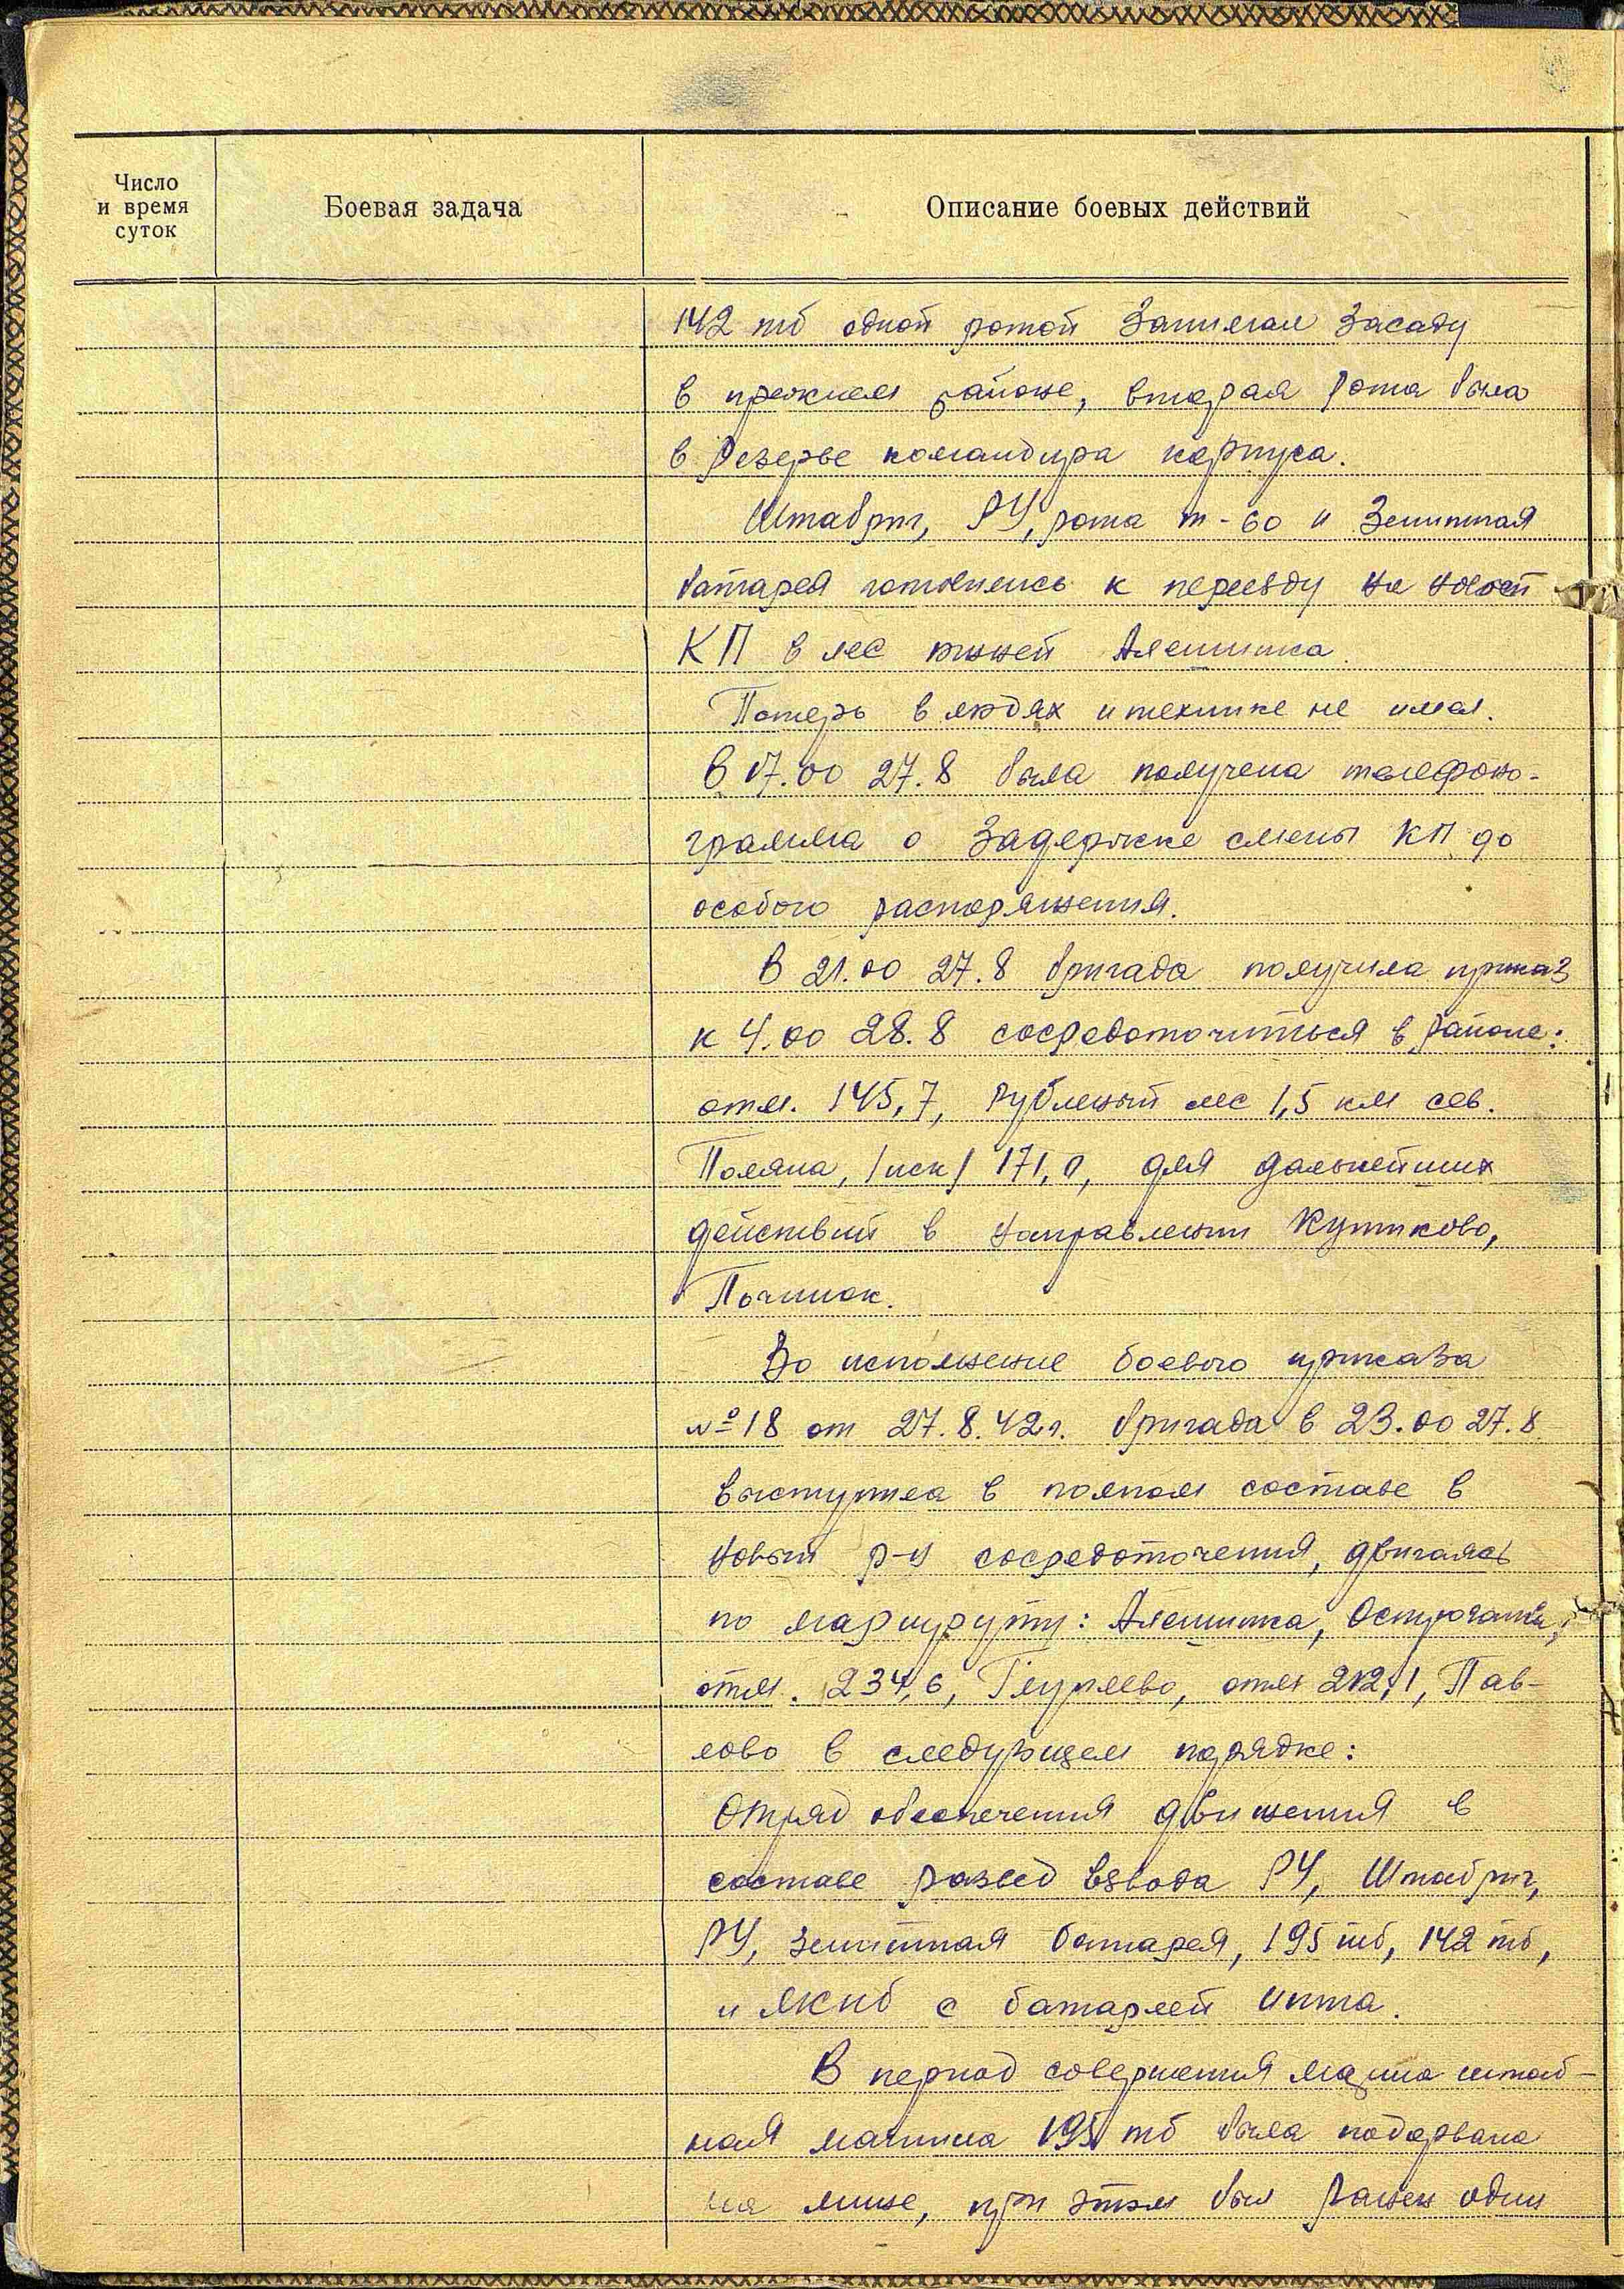 Число
и время
суток
Боевая задача
Описание боевых действий
142 тб одной ротой занимал засаду
в прежнем районе, вторая рота была
в резерве командира корпуса.
Штабриг, РУ, рота т-60 и Зенитная
батарея готовились к переезду на новый
КП в лес южней Алешинка.
Потерь в людях и технике не имел.
В 17.00 27.8 была получена телефоно-
грамма о задержке смены КП до
особого распоряжения.
В 21.00 27.8 бригада получила приказ
к 4.00 28.8 сосредоточиться в районе:
отм. 145,7, Рубленый лес 1,5 км сев.
Поляна, /иск/ 171,0, для дальнейших
действий в направлении
Починок.
Во исполнение боевого приказа
№18 от 27.8.42г. бригада в 23.00 27.8
выступила в полном составе в
новый р-н сосредоточения, двигаясь
по маршруту: Алешинка,
отм. 234,6, отм 212,1, Пав-
лово в следующем порядке:
Отряд обеспечения движения в
составе развед взвода РУ, Штабриг,
РУ, зенитная батарея, 195 тб, 142 тб,
и с батареей
В период совершения марша штаб-
ная машина 195 тб была подорвана
на мине, при этом был ранен один